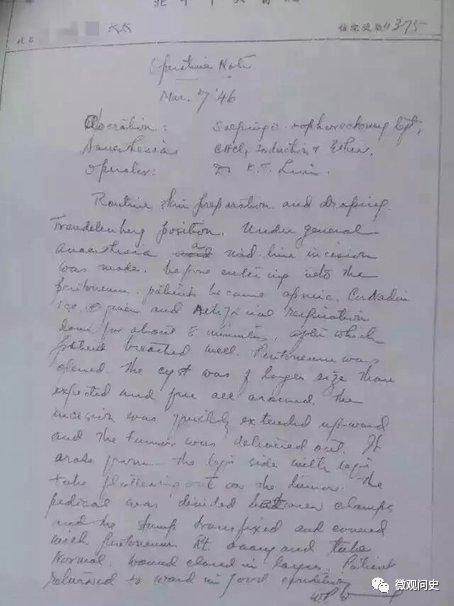 太太
住院號數 11375
姓名
Operative Note
Mar. 7 '46
Operation: Salpingo-oophorectomy left,
Anaesthesia CHCl3 Induction & Ether.
Operator: Dr K. T. Lim.
Routine skin preparation and draping
Trendelenberg position. Under general
anaesthesia a mid-line incision
was made. Before entering into the
peritoneum, patient became apneic.
and artificial respiration
done for about 8 minutes, after which
patient breathed well. Peritoneum was
opened. The cyst was of larger size than
expected and free all around. The
incision was quickly extended upward
and the tumor was delivered out. It
arose from the left side with left
tube flattening out on the tumor. The
pedical was divided between clamps
and the stump transfixed and covered
with peritoneum. Rt. ovary and tube
Normal. Wound closed in layers. Patient
returned to ward in good condition
微观问史